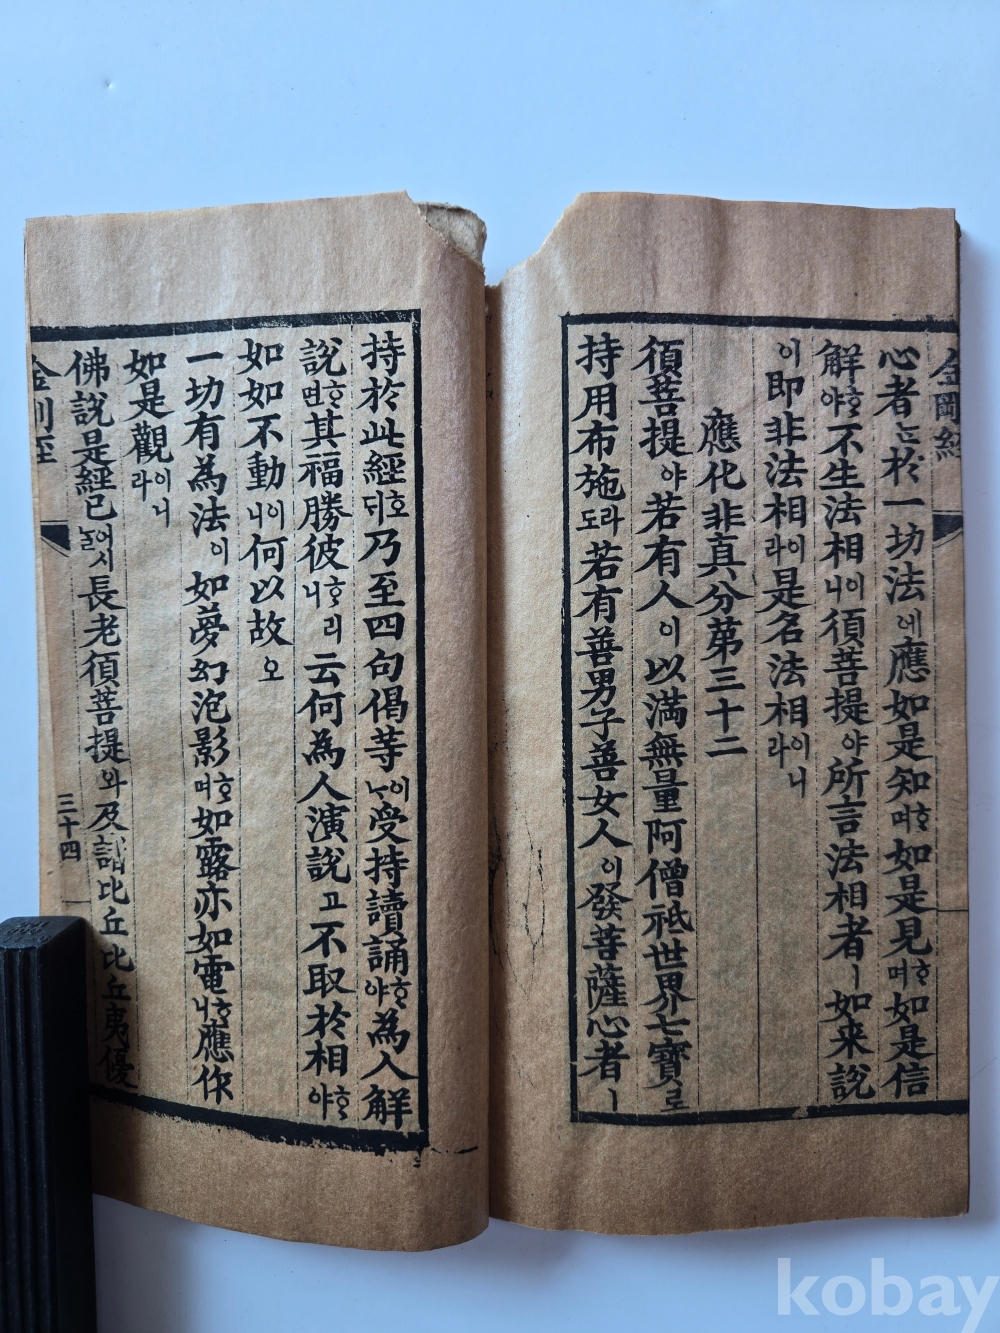 心者는於一切法에應如是知ᄒᆞ며如是見ᄒᆞ며如是信
解ᄒᆞ야不生法相이니須菩提야所言法相者ㅣ如来說
이即非法相이라是名法相이니라
應化非真分第三十二
須菩提야若有人이以満無量阿僧祇世界七寶로
持用布施라도若有善男子善女人이發菩薩心者ㅣ
持於此經호ᄃᆡ乃至四句偈等이나受持讀誦ᄒᆞ야為人解
說ᄒᆞ면其福勝彼ᄒᆞ리니云何為人演說고不取於相ᄒᆞ야
如如不動이니何以故오
一切有為法이如夢幻泡影ᄒᆞ며如露亦如電ᄒᆞ니應作
如是觀이니라
佛說是經已어시ᄂᆞᆯ長老須菩提와及諸比丘比丘夷優
三十四
kobay